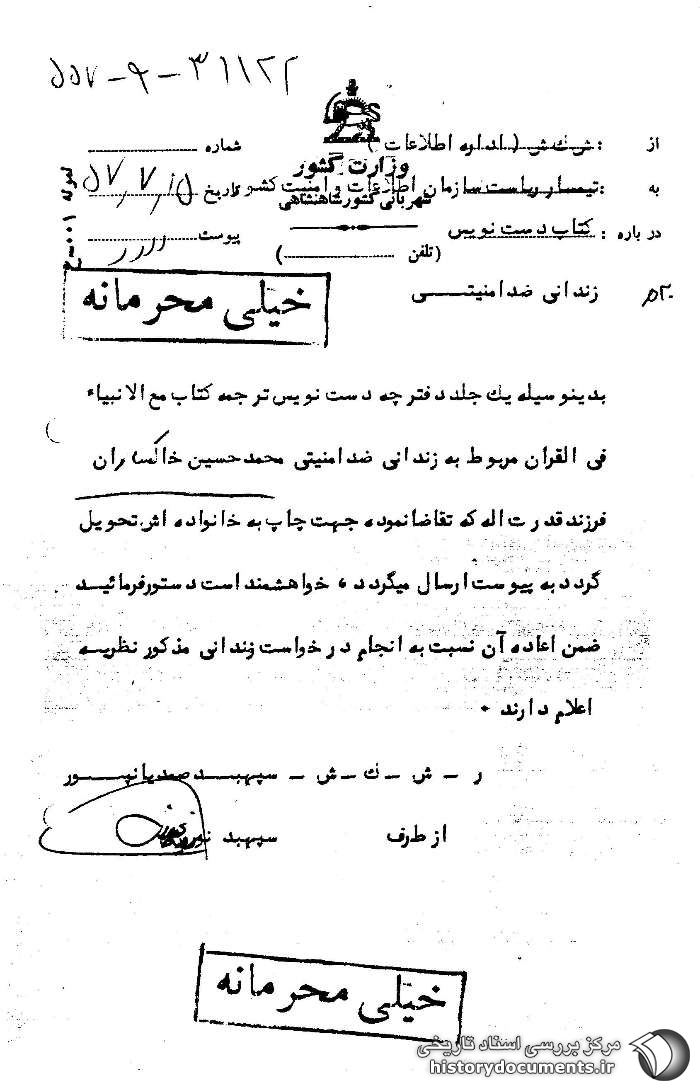 ۵۵۷-۹-۳۱۱۲۲
از : ش ك ش ( اداره اطلاعات ) شماره
وزارت کشور
به : تیمسار ریاست سازمان اطلاعات و امنیت کشور تاریخ ۵۷/۷/۱۵
شهربانی کشور شاهنشاهی
درباره : کتاب دست نویس پیوست
(تلفن )
زندانی ضد امنیتی
خیلی محرمانه
بدینوسیله یك جلد دفترچه دست نویس ترجمه کتاب مع الانبیاء
فی القران مربوط به زندانی ضد امنیتی محمد حسین خاکساران
فرزند قدرت اله که تقاضا نموده جهت چاپ به خانواده اش تحویل
گردد به پیوست ارسال میگردد ، خواهشمند است دستور فرمائید
ضمن اعاده آن نسبت به انجام درخواست زندانی مذکور نظریه
اعلام دارند .
ر - ش - ك - ش - سپهبد صمدیانپور
از طرف سپهبد
خیلی محرمانه
مرکز بررسی اسناد تاریخی
historydocuments.ir